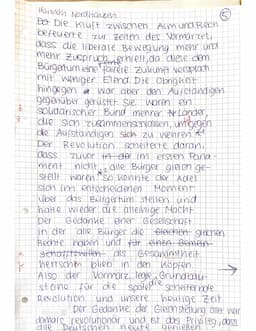 Hannah Nordhausen
5
Die Kluft zwischen Arm und Reich
befeuerte zur Zeiten des Vormärzes,
dass die liberale Bewegung mehr und
mehr Zuspruch erhielt, da diese dem
Bürgertum eine faire Zukunft versprach
mit weniger Elend. Die Obrigkeit
hingegen war aber den Aufständigen
gegenüber gerüstet. Sie waren ein
solidarischer Bund mehrer Länder,
die sich zusammenschlossen, um gegen
die Aufständigen sich zu wehren.
Der Revolution scheiterte daran,
dass zuvor in der im ersten Parla-
ment nicht alle Bürger gleich ge-
stellt waren. So konnte der Adel
sich im entscheidenen Moment
über das Bürgertum stellen und
hatte wieder die alleinige Macht.
Der Gedanke einer Gesellschaft
in der alle Bürger die gleichen
Rechte haben und
als Gesammtheit
herrschen blieb in den Köpfen.
Also der Vormärz legte Grundbau-
steine für die später
Revolution und unsere heutige Zeit.
Der Gedanke der Gleichstellung aber war
damals revolutionär und ist das Privileg, dass
alle Deutschen heute genießen.